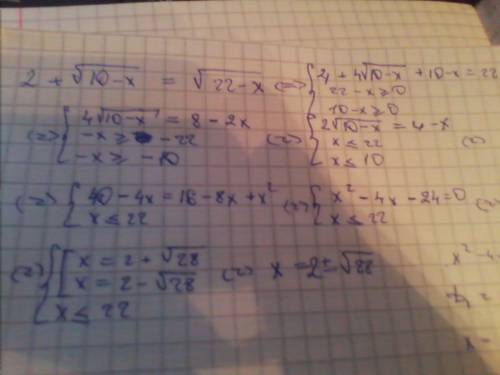 2 + √10-x = √22-x (=) { 4 + 4√10-x + 10-x = 22
22-x ≥ 0
10-x ≥ 0
(=) { 4√10-x = 8 - 2x
-x ≥ -22
-x ≥ -10
(=) { 2√10-x = 4-x
x ≤ 22
x ≤ 10
(=)
(=) { 40 - 4x = 16 - 8x + x²
x ≤ 22
(=) { x² - 4x - 24 = 0
x ≤ 22
(=)
(=) { [ x = 2 + √28
x = 2 - √28
x ≤ 22
(=) x = 2 ± √22
x² - 4
x =